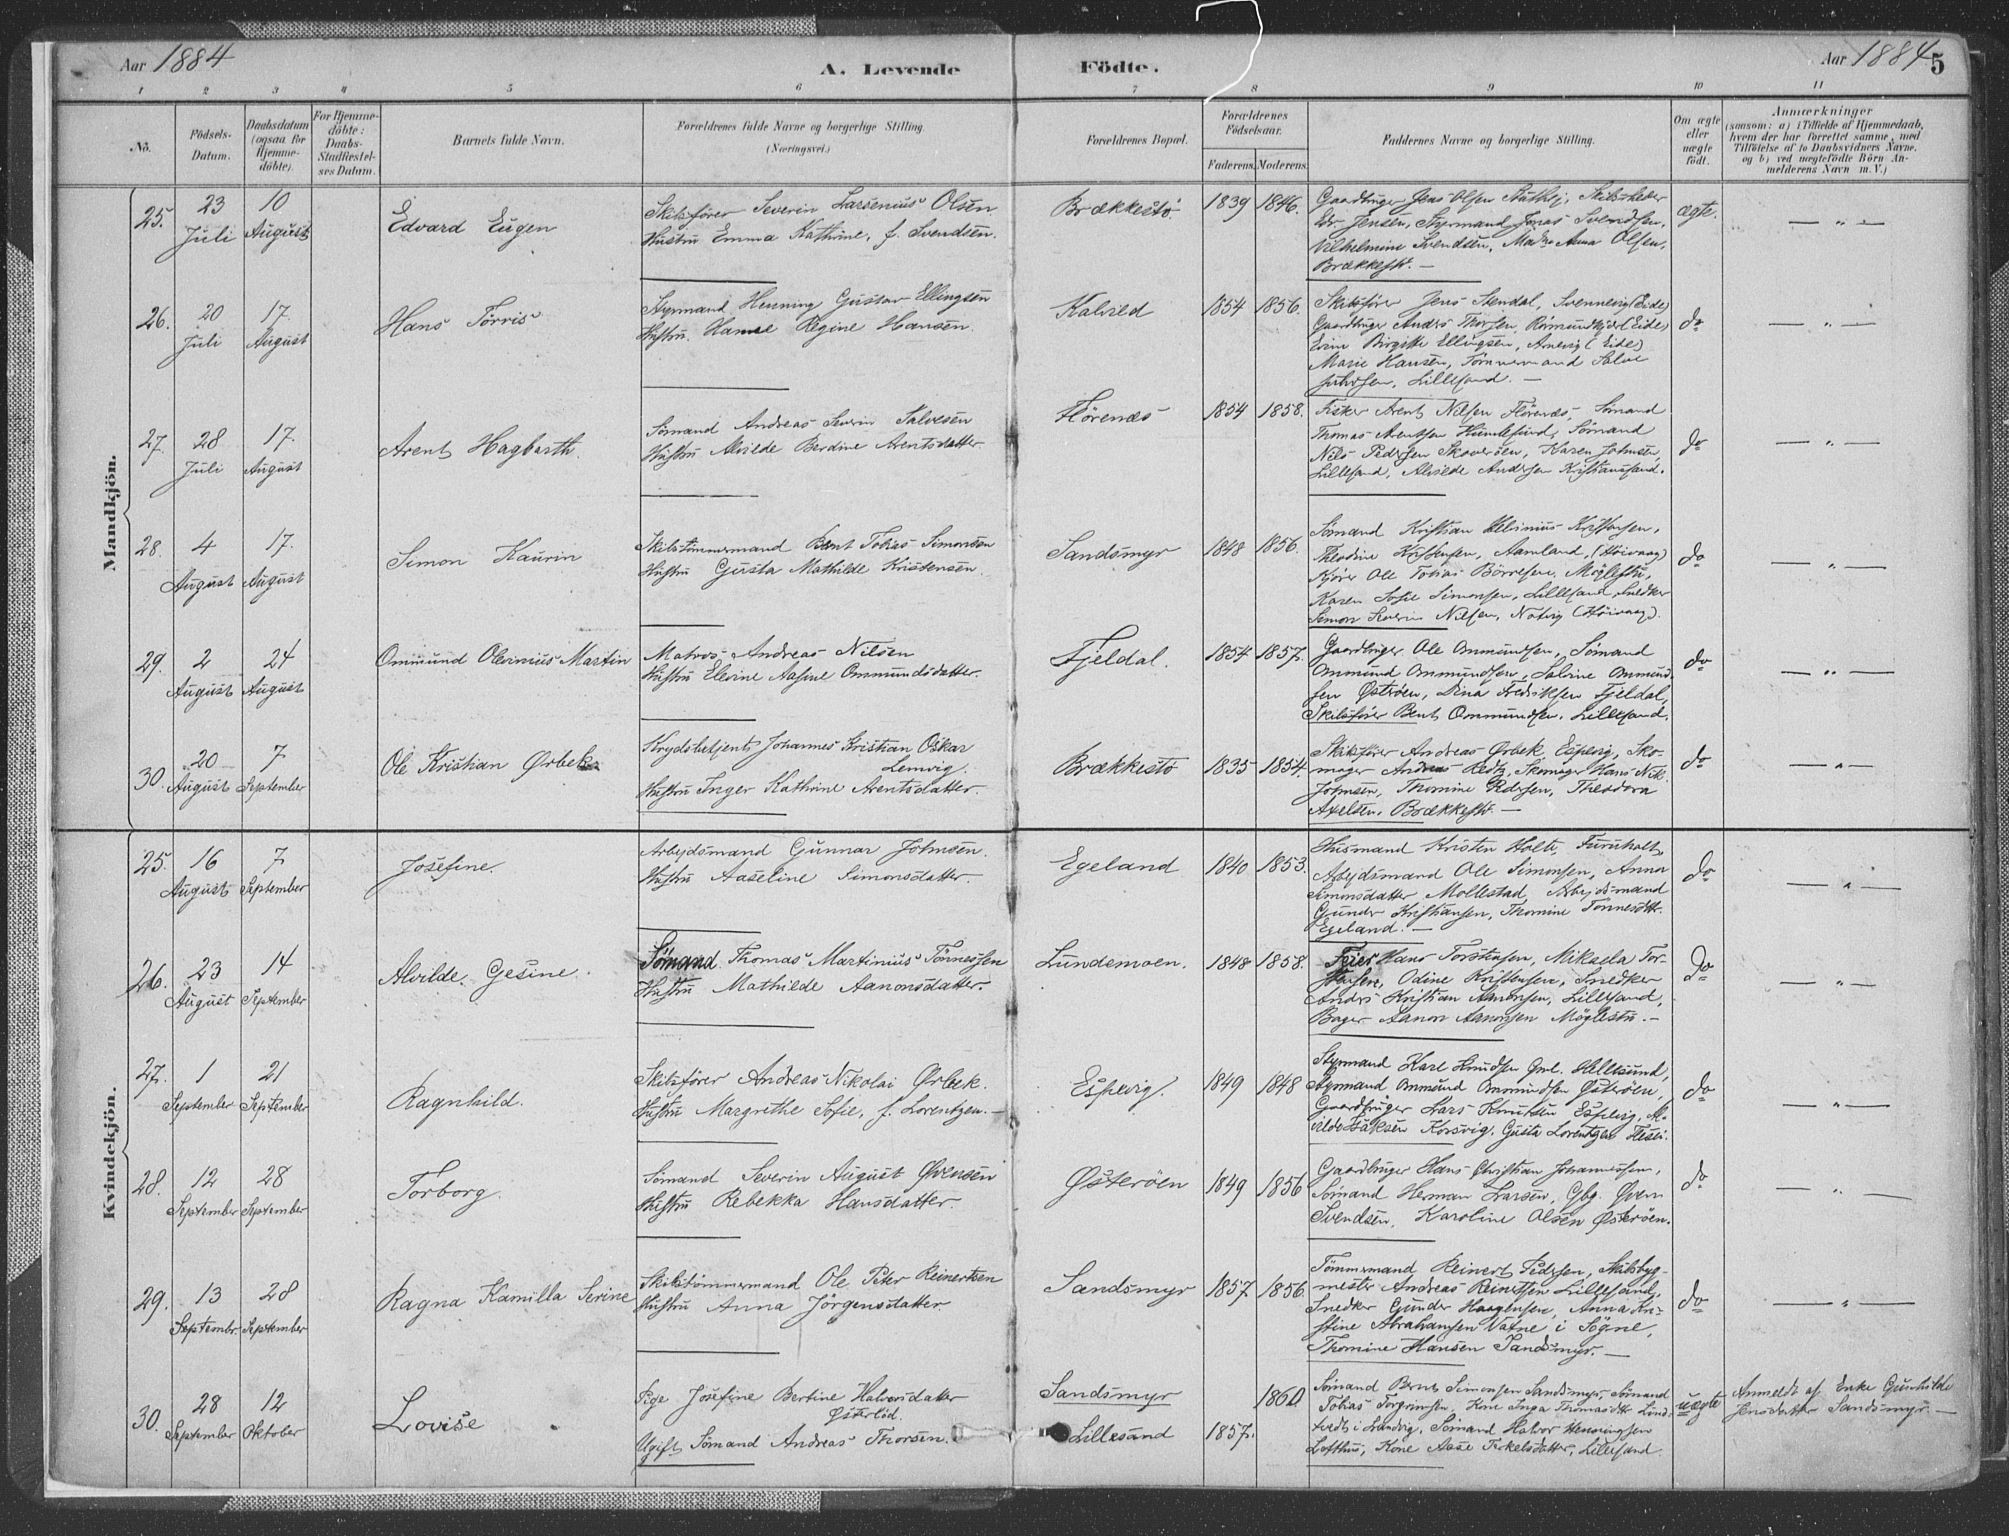 Aar 1884
A. Levende Födte.
Aar 1884
5
1 2 3 4 5 6 7 8 9 10 11
No.
Födsels-
Datum.
Daabsdatum
(ogsaa for
Hjemme-
döbte).
For Hjemme-
döbte:
Daabs-
Stadfæstel-
ses Datum.
Barnets fulde Navn.
Forældrenes fulde Navne og borgerlige Stilling
(Næringsvei.)
Forældrenes Bopæl.
Forældrenes
Födselsaar.
Faderens. Moderens.
Faddernes Navne og borgerlige Stilling.
Om ægte
eller
uægte
födt.
Anmærkninger
(saasom: a) i Tilfælde af Hjemmedaab,
hvem der har forrettet samme, med
Tilföielse af to Daabsvidners Navne,
og b) ved uægtefödte Börn An-
melderens Navn m. V.)
Mandkjön.
25. 23 Juli 10 August
Edvard Eugen
Skibsfører Severin Larsenius Olsen
Hustru Emma Kathrine, f. Svendsen.
Brækkestø 1839 1846.
Gaardbruger Jens Olsen, Skibsreder
Edv. Jensen, Styrmand Jonas Svendsen,
Vilhelmine Svendsen, Anna Olsen,
Brækkestø. —
ægte.
— " —
26. 20 Juli 17. August
Hans Tørris
Styrmand Henning Gustav Ellingsen
Hustru Regine Hansen.
Kalvild 1854 1856.
Skibsfører Jens Stendal, Svennevig (Eide)
Gaardbruger Anders Thorsen, (Eide)
Birgitte Ellingsen, (Eide)
Marie Hansen, Tømmermand Salve
Lillesand. —
do
— " —
27. 28 Juli 17. August
Arent Hagbarth.
Sømand Andreas Severin Salvesen
Hustru Alvilde Berdine Arentsdatter.
Flörenæs 1854 1858.
Fisker Arent Nilsen Flörenæs, Sømand
Thomas Arentsen Humlesund, Sømand
Nils Pedersen Skauerøen, Karen Johnsen,
Lillesand, Alvilde Andersen Kristianssand.
do
— " —
28. 4 August 17. August
Simon Kaurin
Skibstømmermand Bent Tobias Simonsen
Hustru Gusta Mathilde Kristensen.
Sandsmyr 1848 1856.
Sømand Kristian Kristensen,
Theodine Kristensen, Aamland, (Höivaag)
Kjører Ole Tobias Börresen, Möglestu,
Karen Sofie Simonsen, Lillesand, Snedker
Simon Severin Nilsen, (Höivaag).
do
— " —
29. 2 August 24 August
Ommund Olerinius Martin
Matros Andreas Nilsen
Hustru Elevine Aasine Ommundsdatter.
Fjeldal. 1854 1857.
Gaardbruger Ole Ommundsen, Sømand
Ommund Ommundsen, Salvine Ommund-
sen Østerøen, Dina Fredriksen Fjeldal,
Skibsfører Bent Ommundsen, Lillesand.
do
— " —
30. 20 August 7 September
Ole Kristian Ørbek
Krydsbetjent Johannes Kristian Oskar
Lemvig.
Hustru Inger Kathrine Arentsdatter.
Brækkestø 1835 1854.
Skibsfører Andreas Ørbek, Espevig, Sko-
mager Andreas Skomager Hans Nik.
Johnsen, Thomine Pedersen, Theodora
Axelsen, Brækkestø. —
do
— " —
Kvindekjön.
25. 16 August 7 September
Josefine.
Arbejdsmand Gunnar Johnsen.
Hustru Aaseline Simonsdatter.
Egeland 1840 1853.
Husmand Kristen Holte, Furuholt,
Arbejdsmand Ole Simonsen, Anna
Simonsdatter Mollestad, Arbejdsmand
Gunder Kristiansen, Thomine Tønnesdtr.
Egeland. —
do
— " —
26. 23 August 14 September
Alvilde Gesine.
Sømand Thomas Martinius Tönnessen
Hustru Mathilde Aanonsdatter.
Lundemoen. 1848 1858.
Feier Hans Torstensen, Mikaela Tor-
stensen, Odine Kristensen, Snedker
Anders Kristian Aanonsen, Lillesand,
Bager Aanon Aanonsen Möglestu. —
do
— " —
27. 1 September 21 September
Ragnhild.
Skibsfører Andreas Nikolai Ørbek.
Hustru Margrethe Sofie, f. Lorentzen. —
Espevig. 1849 1848
Styrmand Karl Knudsen Hellesund,
Styrmand Ommund Ommundsen Østerøen,
Gaardbruger Lars Knutsen Espevig, Al-
vilde Isaksen Korsvig, Gusta Lorentzen
do
— " —
28. 12 September 28 September
Torborg.
Sømand Severin August Øvensen
Hustru Rebekka Hansdatter.
Østerøen 1849 1856
Gaardbruger Hans Christian Johannessen,
Sømand Herman Larsen, Gbg. Øven
Svendsen, Karoline Olsen Østerøen.
do
— " —
29. 13 Septembr. 28 September
Ragna Kamilla Serine
Skibstømmermand Ole Peter Reinertsen
Hustru Anna Jörgensdatter
Sandsmyr 1857 1856
Tömmermand Reinert Pedersen, Skibsbyg-
mester Andreas Reinertsen Lillesand,
Snedker Gunder Haagensen, Anna Kri-
stine Abrahamsen Vatne i Søgne,
Thomine Hansen Sandsmyr. —
do
— " —
30. 28 September 12 Oktober
Lovise
Pige Josefine Bertine Halvorsdatter
Østerlöd.
Ugift Sømand Andreas Thorsen.
Sandsmyr 1860
Lillesand 1857.
Sømand Bernt Simonsen Sandsmyr, Sømand
Tobias Torgrimsen, Kone Inga Thomasdtr. Lind-
tvedt i Landvig, Sømand Halvor Henningsen
Lofthus, Kone Aase Terkelsdatter, Lillesand.
uægte
Anmeldt af Enke Gunhilde
Jensdatter Sandsmyr. —